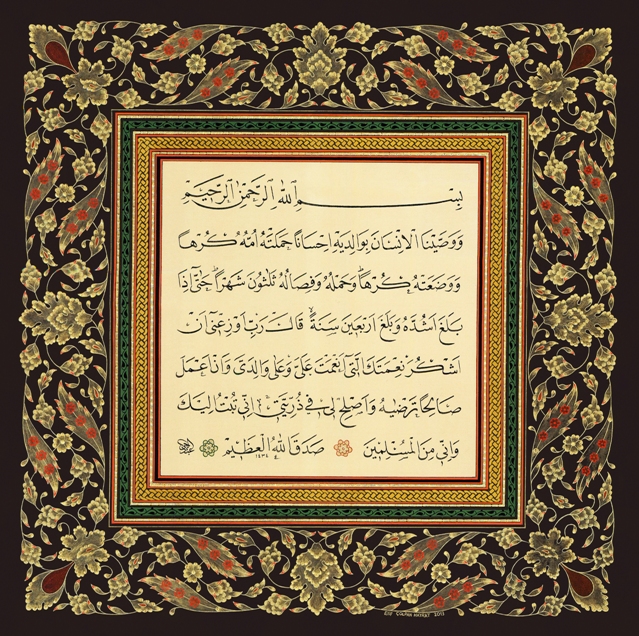 بِسْمِ اللهِ الرَّحْمٰنِ الرَّحِيْمِ
وَوَصَّيْنَا الْاِنْسَانَ بِوَالِدَيْهِ اِحْسَانًا حَمَلَتْهُ اُمُّهُ كُرْهًا
وَوَضَعَتْهُ كُرْهًا وَحَمْلُهُ وَفِصَالُهُ ثَلٰثُونَ شَهْرًا حَتّٰى اِذَا
بَلَغَ اَشُدَّهُ وَبَلَغَ اَرْبَعِينَ سَنَةً قَالَ رَبِّ اَوْزِعْنِى اَنْ
اَشْكُرَ نِعْمَتَكَ الَّتِى اَنْعَمْتَ عَلَىَّ وَعَلٰى وَالِدَىَّ وَاَنْ اَعْمَلَ
صَالِحًا تَرْضٰيهُ وَاَصْلِحْ لِى فِى ذُرِّيَّتِى اِنِّى تُبْتُ اِلَيْكَ
وَاِنِّى مِنَ الْمُسْلِمِينَ صَدَقَ اللهُ الْعَظِيْمُ ١٤٣٤
2013